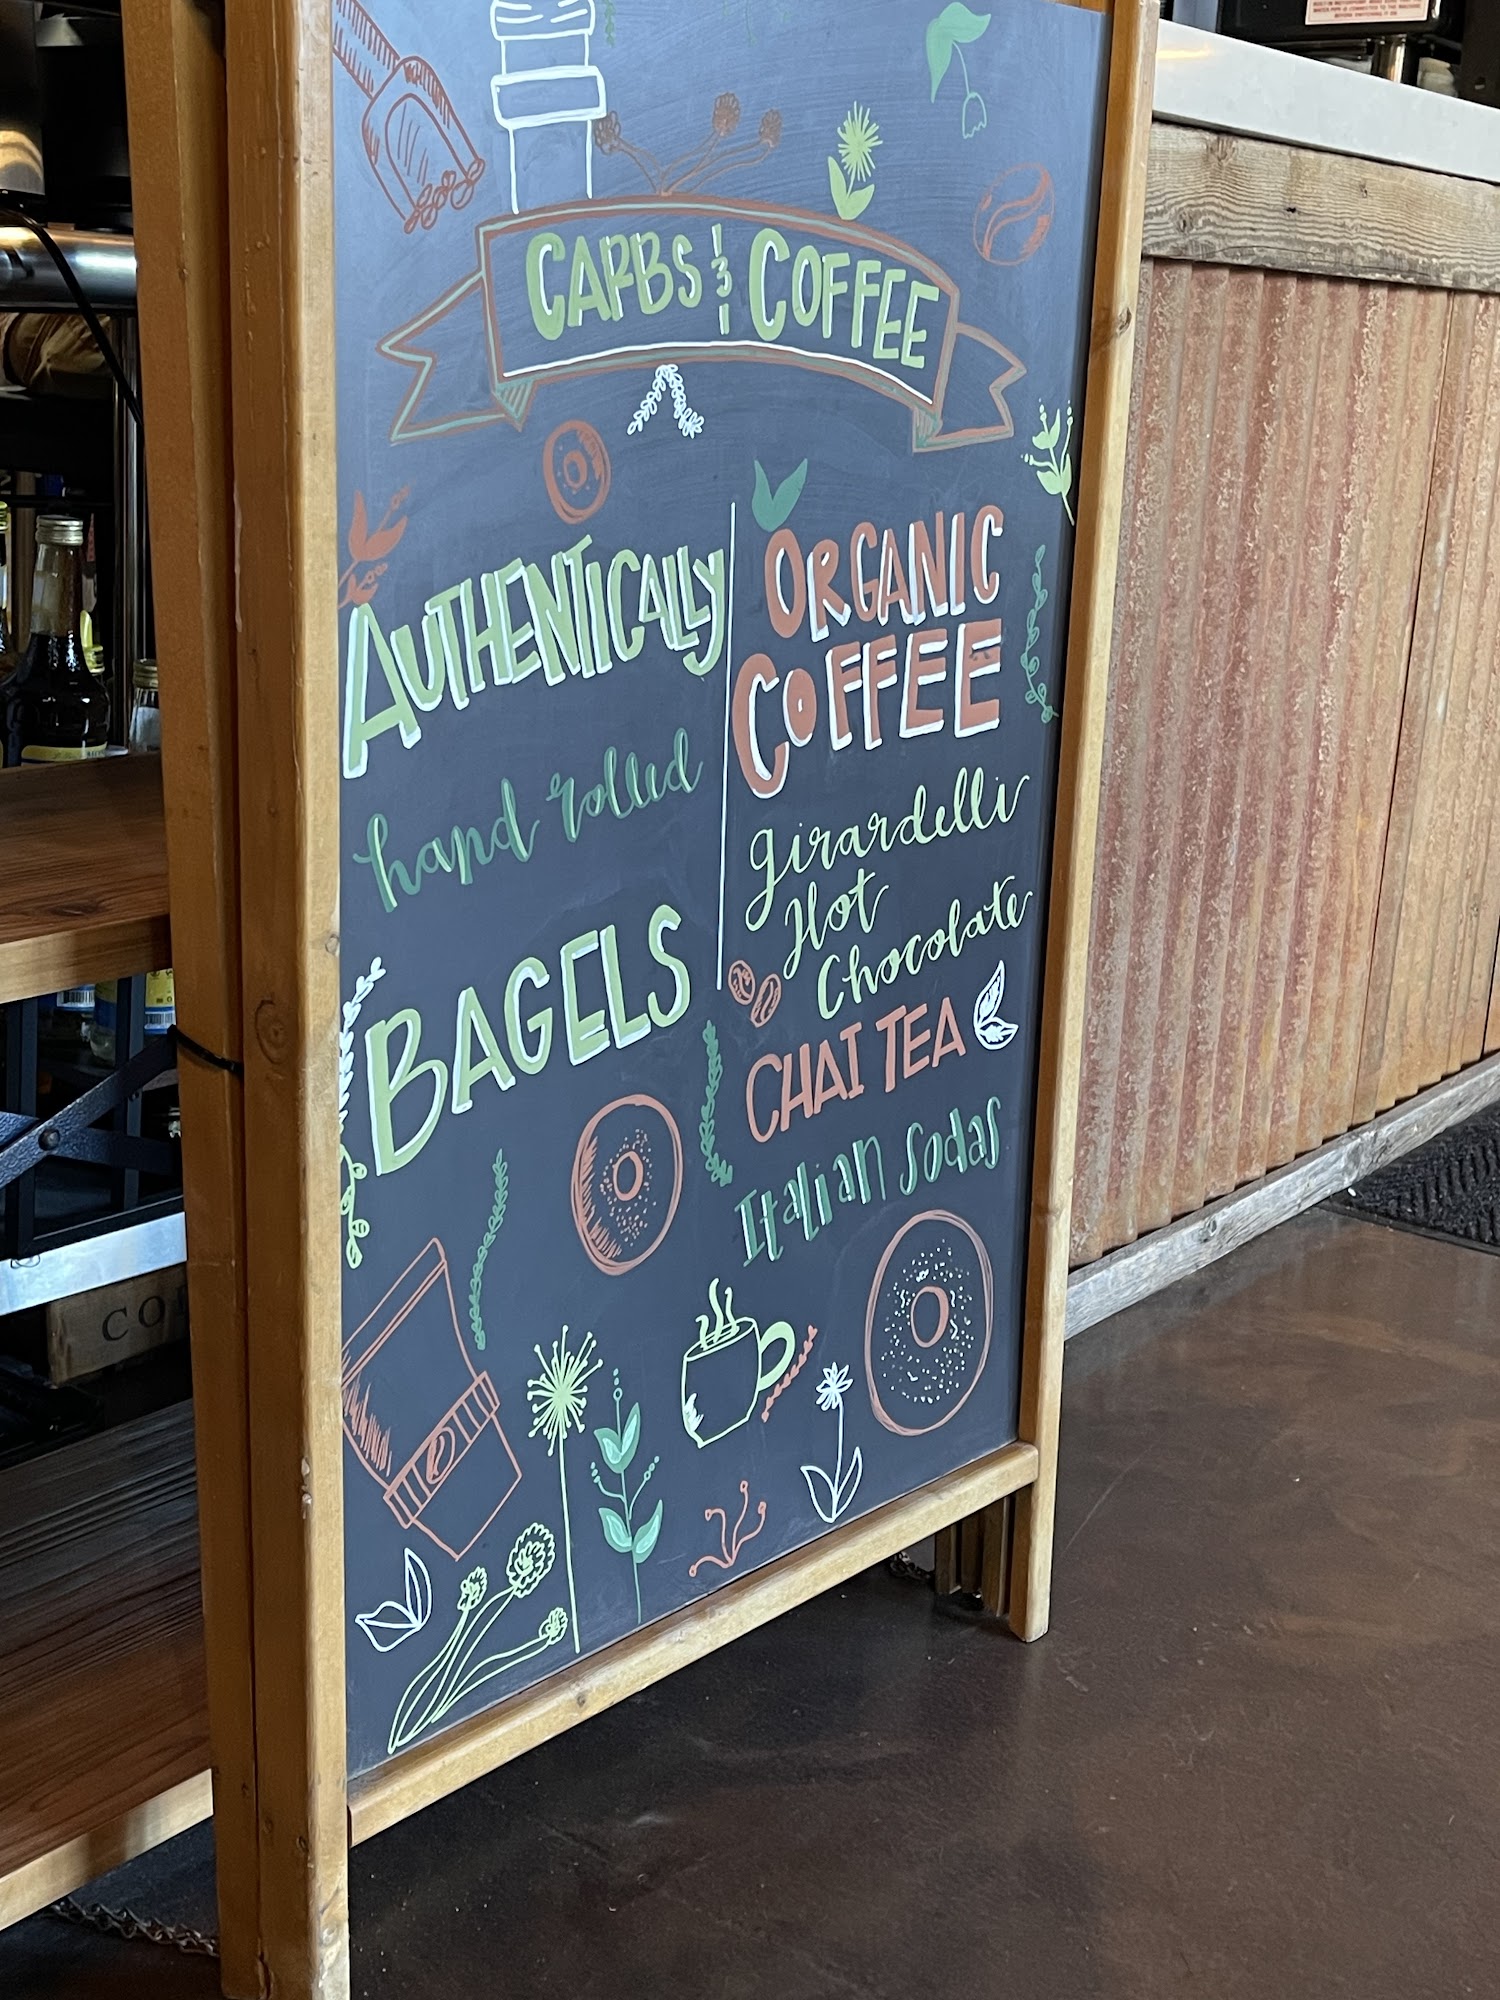 CARBS & COFFEE
AUTHENTICALLY
hand rolled
BAGELS
ORGANIC
COFFEE
Girardelli
Hot
Chocolate
CHAI TEA
Italian Sodas